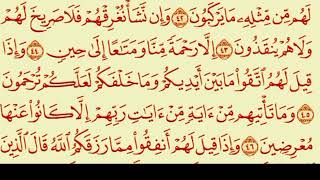 لَهُم مِّن مِّثْلِهِۦ مَا يَرْكَبُونَ ٤٢ وَإِن نَّشَأْ نُغْرِقْهُمْ فَلَا صَرِيخَ لَهُمْ
وَلَا هُمْ يُنقَذُونَ ٤٣ إِلَّا رَحْمَةً مِّنَّا وَمَتَٰعًا إِلَىٰ حِينٍ ٤٤ وَإِذَا
قِيلَ لَهُمُ ٱتَّقُوا۟ مَا بَيْنَ أَيْدِيكُمْ وَمَا خَلْفَكُمْ لَعَلَّكُمْ تُرْحَمُونَ
٤٥ وَمَا تَأْتِيهِم مِّنْ ءَايَةٍ مِّنْ ءَايَٰتِ رَبِّهِمْ إِلَّا كَانُوا۟ عَنْهَا
مُعْرِضِينَ ٤٦ وَإِذَا قِيلَ لَهُمْ أَنفِقُوا۟ مِمَّا رَزَقَكُمُ ٱللَّهُ قَالَ ٱلَّذِينَ